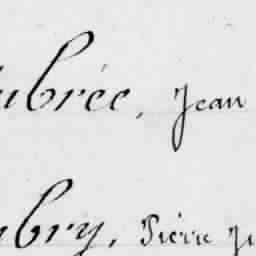 ubrée, Jean
bry, Pierre